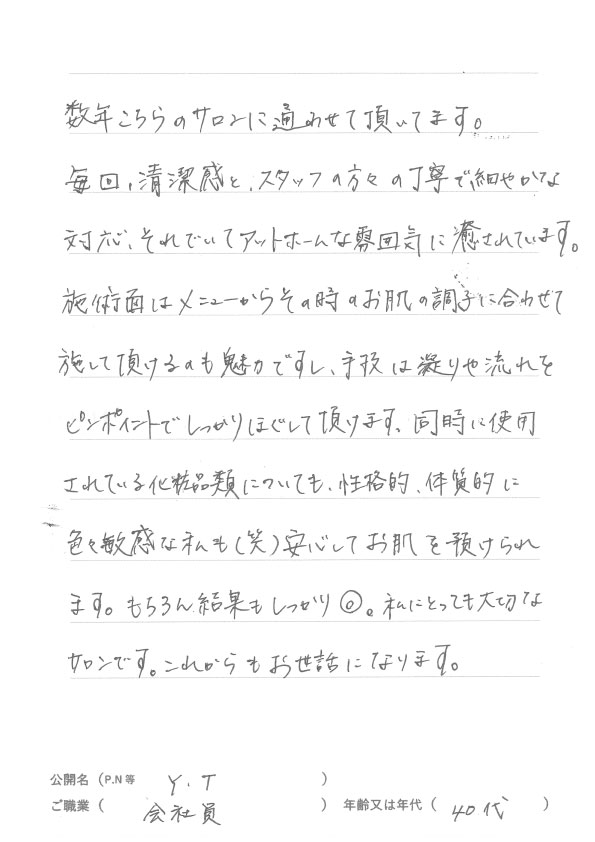 数年こちらのサロンに通わせて頂いてます。
毎回、清潔感と、スタッフの方々の丁寧で細やかな
対応、それでいてアットホームな雰囲気に癒されています。
施術面はメニューからその時のお肌の調子に合わせて
施して頂けるのも魅力ですし、手技は凝りや流れを
ピンポイントでしっかりほぐして頂けます、同時に使用
されている化粧品類についても、性格的、体質的に
色々敏感な私も(笑)安心してお肌を預けられ
ます。もちろん結果もしっかり◎。私にとっても大切な
サロンです。これからもお世話になります。
公開名(P.N等 Y.T )
ご職業( 会社員 ) 年齢又は年代( 40代 )